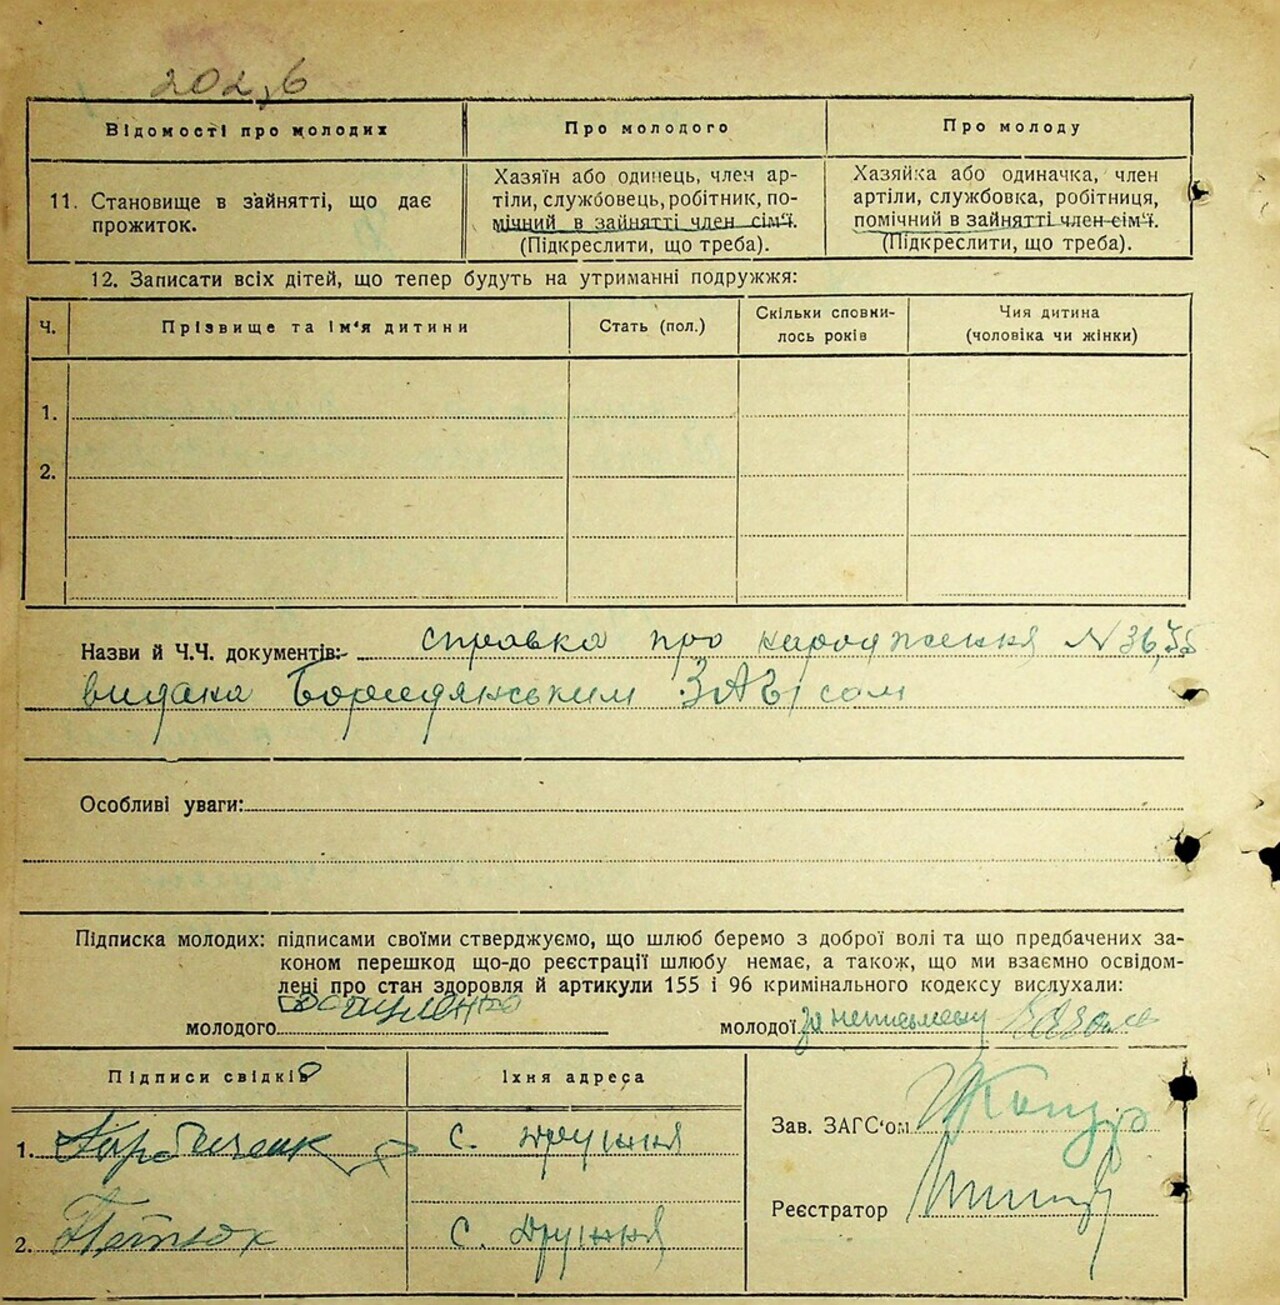 202,6
Відомості про молодих
Про молодого
Про молоду
11. Становище в зайнятті, що дає
прожиток.
Хазяїн або одинець, член ар-
тіли, службовець, робітник, по-
мічний в зайнятті член сім'ї.
(Підкреслити, що треба).
Хазяйка або одиначка, член
артіли, службовка, робітниця,
помічний в зайнятті член сім'ї.
(Підкреслити, що треба).
12. Записати всіх дітей, що тепер будуть на утриманні подружжя:
Ч.
Прізвище та ім'я дитини
Стать (пол.)
Скільки сповни-
лось років
Чия дитина
(чоловіка чи жінки)
1.
2.
Назви й Ч.Ч. документів: справка про народження N
видана Бородянським ЗАГсом
Особливі уваги:
Підписка молодих: підписами своїми стверджуємо, що шлюб беремо з доброї волі та що предбачених за-
коном перешкод що-до реєстрації шлюбу немає, а також, що ми взаємно освідом-
лені про стан здоровля й артикули 155 і 96 кримінального кодексу вислухали:
молодого
молодої за неписьмену
Підписи свідків
Їхня адреса
1.
с. Дружня
2.
с. Дружня
Зав. ЗАГС'ом
Реєстратор